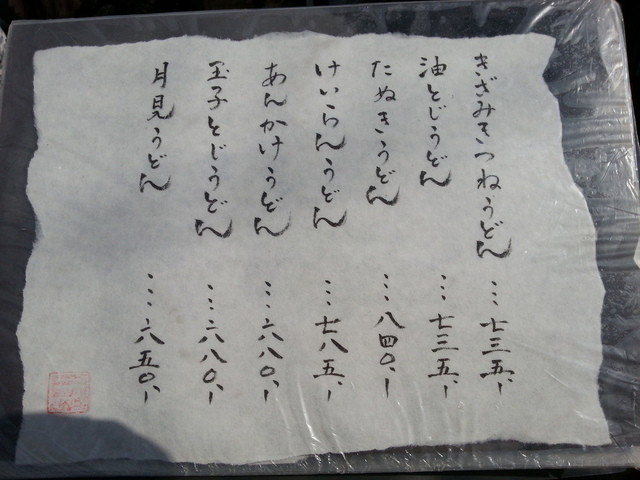 きざみきつねうどん …七三五、ー
油とじうどん …七三五、ー
たぬきうどん …八四〇、ー
けいらんうどん …七八五、ー
あんかけうどん …六八〇、ー
玉子とじうどん …六八〇、ー
月見うどん …六五〇、ー